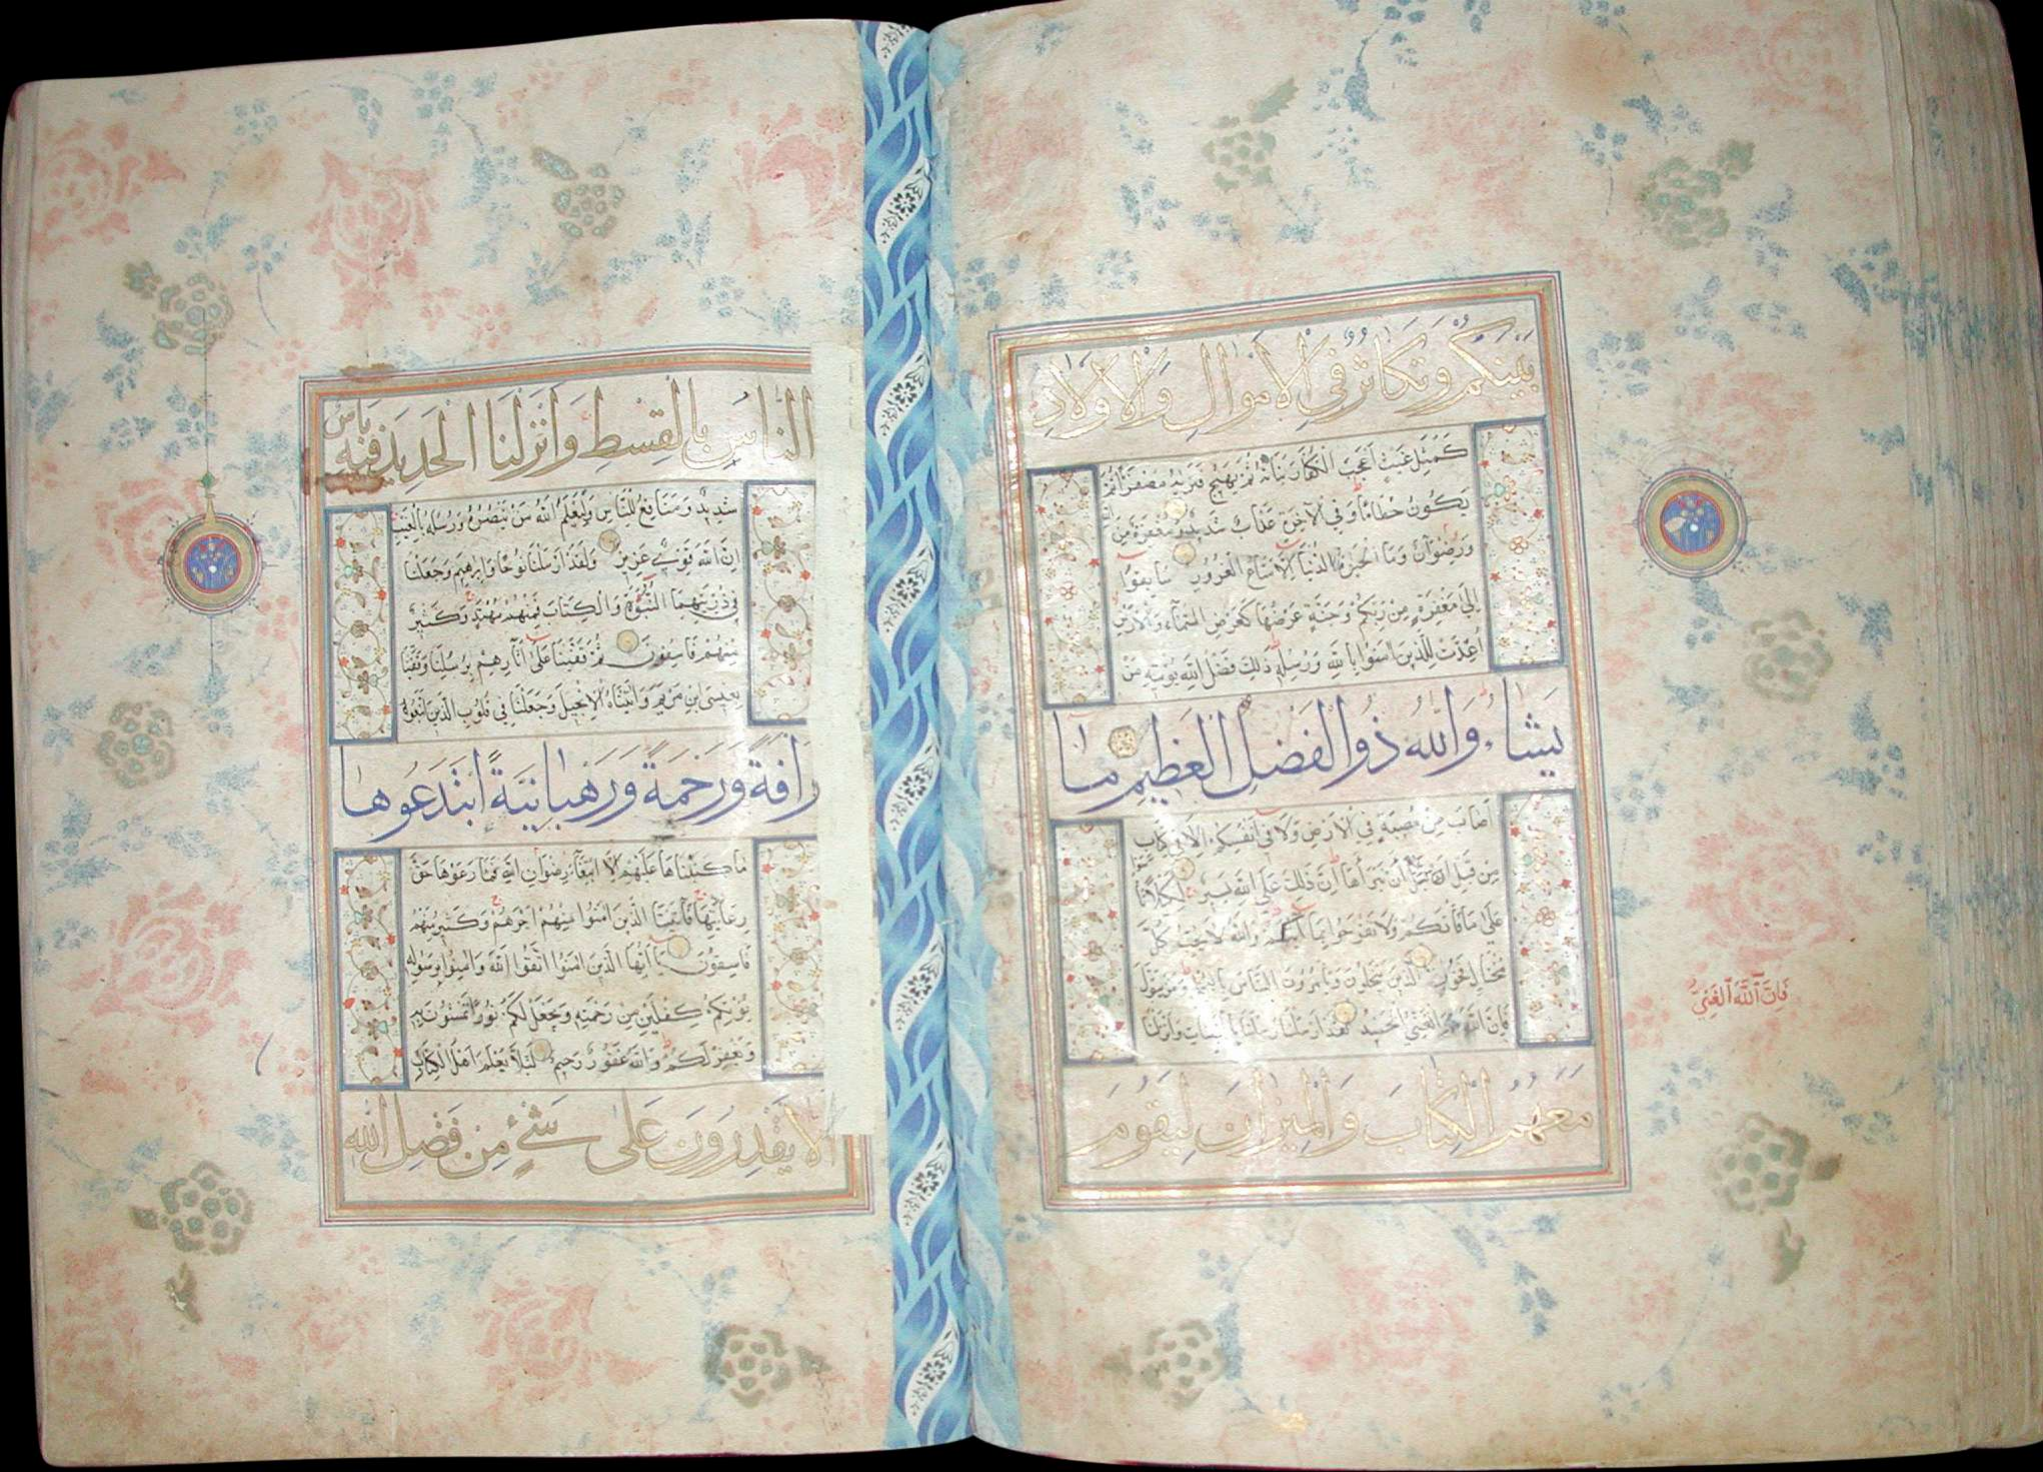 بَيْنَكُمْ وَتَكَاثُرٌ فِي الْأَمْوَالِ وَالْأَوْلَادِ
كَمَثَلِ غَيْثٍ أَعْجَبَ الْكُفَّارَ نَبَاتُهُ ثُمَّ يَهِيجُ فَتَرَاهُ مُصْفَرًّا ثُمَّ
يَكُونُ حُطَامًا وَفِي الْآخِرَةِ عَذَابٌ شَدِيدٌ وَمَغْفِرَةٌ مِنَ
وَرِضْوَانٌ وَمَا الْحَيٰوةُ الدُّنْيَا إِلَّا مَتَاعُ الْغُرُورِ سَابِقُوا
إِلَى مَغْفِرَةٍ مِنْ رَبِّكُمْ وَجَنَّةٍ عَرْضُهَا كَعَرْضِ السَّمَاءِ وَالْأَرْضِ
أُعِدَّتْ لِلَّذِينَ آمَنُوا بِاللَّهِ وَرُسُلِهِ ذَلِكَ فَضْلُ اللَّهِ يُؤْتِيهِ مَنْ
يَشَاءُ وَاللَّهُ ذُو الْفَضْلِ الْعَظِيمِ مَا
أَصَابَ مِنْ مُصِيبَةٍ فِي الْأَرْضِ وَلَا فِي أَنْفُسِكُمْ إِلَّا فِي كِتَابٍ
مِنْ قَبْلِ أَنْ نَبْرَأَهَا إِنَّ ذَلِكَ عَلَى اللَّهِ يَسِيرٌ لِكَيْلَا
عَلَى مَا فَاتَكُمْ وَلَا تَفْرَحُوا بِمَا آتَاكُمْ وَاللَّهُ لَا يُحِبُّ كُلَّ
مُخْتَالٍ فَخُورٍ الَّذِينَ يَبْخَلُونَ وَيَأْمُرُونَ النَّاسَ بِالْبُخْلِ وَمَنْ يَتَوَلَّ
فَإِنَّ اللَّهَ هُوَ الْغَنِيُّ الْحَمِيدُ لَقَدْ أَرْسَلْنَا رُسُلَنَا بِالْبَيِّنَاتِ وَأَنْزَلْنَا
مَعَهُمُ الْكِتَابَ وَالْمِيزَانَ لِيَقُومَ
فَإِنَّ ٱللَّهَ ٱلْغَنِيُّ
النَّاسُ بِالْقِسْطِ وَأَنْزَلْنَا الْحَدِيدَ فِيهِ بَأْسٌ
شَدِيدٌ وَمَنَافِعُ لِلنَّاسِ وَلِيَعْلَمَ اللَّهُ مَنْ يَنْصُرُهُ وَرُسُلَهُ بِالْغَيْبِ
إِنَّ اللَّهَ قَوِيٌّ عَزِيزٌ وَلَقَدْ أَرْسَلْنَا نُوحًا وَإِبْرٰهِيمَ وَجَعَلْنَا
فِي ذُرِّيَّتِهِمَا النُّبُوَّةَ وَالْكِتَابَ فَمِنْهُمْ مُهْتَدٍ وَكَثِيرٌ
مِنْهُمْ فَاسِقُونَ ثُمَّ قَفَّيْنَا عَلَى آثَارِهِمْ بِرُسُلِنَا وَقَفَّيْنَا
بِعِيسَى ابْنِ مَرْيَمَ وَآتَيْنَاهُ الْإِنْجِيلَ وَجَعَلْنَا فِي قُلُوبِ الَّذِينَ اتَّبَعُوهُ
رَأْفَةً وَرَحْمَةً وَرَهْبَانِيَّةً ابْتَدَعُوهَا
مَا كَتَبْنَاهَا عَلَيْهِمْ إِلَّا ابْتِغَاءَ رِضْوَانِ اللَّهِ فَمَا رَعَوْهَا حَقَّ
رِعَايَتِهَا فَآتَيْنَا الَّذِينَ آمَنُوا مِنْهُمْ أَجْرَهُمْ وَكَثِيرٌ مِنْهُمْ
فَاسِقُونَ يَا أَيُّهَا الَّذِينَ آمَنُوا اتَّقُوا اللَّهَ وَآمِنُوا بِرَسُولِهِ
يُؤْتِكُمْ كِفْلَيْنِ مِنْ رَحْمَتِهِ وَيَجْعَلْ لَكُمْ نُورًا تَمْشُونَ بِهِ
وَيَغْفِرْ لَكُمْ وَاللَّهُ غَفُورٌ رَحِيمٌ لِئَلَّا يَعْلَمَ أَهْلُ الْكِتَابِ
أَلَّا يَقْدِرُونَ عَلَى شَيْءٍ مِنْ فَضْلِ اللَّهِ